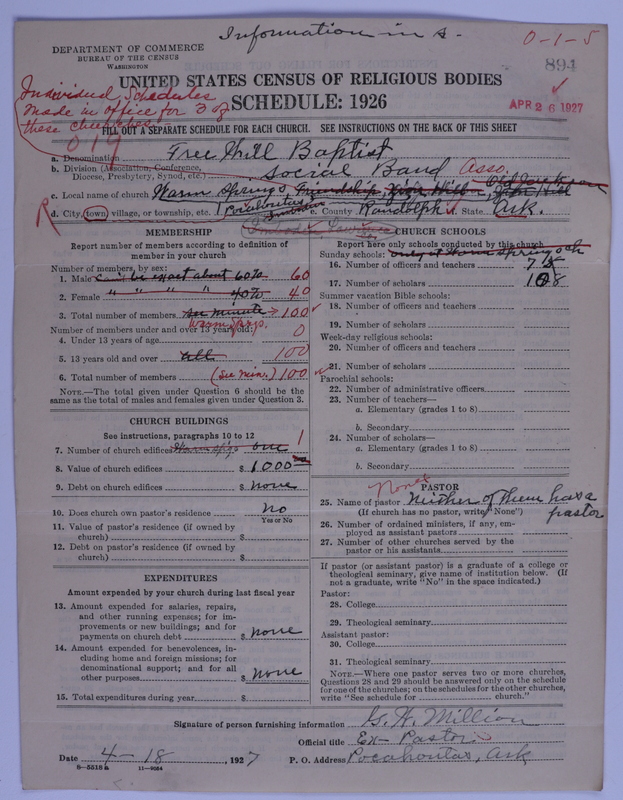 Information in s.
0-1-5
DEPARTMENT OF COMMERCE
BUREAU OF THE CENSUS
WASHINGTON
894
UNITED STATES CENSUS OF RELIGIOUS BODIES
SCHEDULE: 1926
APR 26 1927
Individual Schedules
made in office for 3 of
these churches
019
FILL OUT A SEPARATE SCHEDULE FOR EACH CHURCH. SEE INSTRUCTIONS ON THE BACK OF THIS SHEET
a. Denomination Free Will Baptist
b. Division (Association, Conference, Diocese, Presbytery, Synod, etc.) Social Band Asso.
c. Local name of church Warm Springs Friendship
R d. City, town, village, or township, etc. Pocahontas e. County Randolph f. State Ark.
MEMBERSHIP
Report number of members according to definition of
member in your church
Number of members by sex:
1. Male Can't be exact about 60% 60
2. Female " " " " 40% 40
3. Total number of members see minute 100
Warm Spgs.
Number of members under and over 13 years old:
4. Under 13 years of age 0
5. 13 years old and over all 100
6. Total number of members (See min.) 100
NOTE.—The total given under Question 6 should be the
same as the total of males and females given under Question 3.
CHURCH BUILDINGS
See instructions, paragraphs 10 to 12
7. Number of church edifices Warm Spgs one 1
8. Value of church edifices $ 1000 00
9. Debt on church edifices $ none
10. Does church own pastor's residence No
Yes or No
11. Value of pastor's residence (if owned by
church) $
12. Debt on pastor's residence (if owned by
church) $
EXPENDITURES
Amount expended by your church during last fiscal year
13. Amount expended for salaries, repairs,
and other running expenses; for im-
provements or new buildings; and for
payments on church debt $ none
14. Amount expended for benevolences, in-
cluding home and foreign missions; for
denominational support; and for all
other purposes $ none
15. Total expenditures during year $
CHURCH SCHOOLS
Report here only schools conducted by this church
Sunday schools: only at Warm Springs ch
16. Number of officers and teachers 7
17. Number of scholars 108
Summer vacation Bible schools:
18. Number of officers and teachers
19. Number of scholars
Week-day religious schools:
20. Number of officers and teachers
21. Number of scholars
Parochial schools:
22. Number of administrative officers
23. Number of teachers—
a. Elementary (grades 1 to 8)
b. Secondary
24. Number of scholars—
a. Elementary (grades 1 to 8)
b. Secondary
None
PASTOR
25. Name of pastor Neither of them have a
(If church has no pastor, write "None") pastor
26. Number of ordained ministers, if any, em-
ployed as assistant pastors
27. Number of other churches served by the
pastor or his assistants
If pastor (or assistant pastor) is a graduate of a college or
theological seminary, give name of institution below. (If
not a graduate, write "No" in the space indicated.)
Pastor:
28. College
29. Theological seminary
Assistant pastor:
30. College
31. Theological seminary
NOTE.—Where one pastor serves two or more churches,
Questions 28 and 29 should be answered only on the schedule
for one of the churches; on the schedules for the other churches,
write "See schedule for church."
Signature of person furnishing information G. W. Million
Official title Ex-Pastor
Date 4-18, 1927 P. O. Address Pocahontas, Ark
8-5518a 11-9054